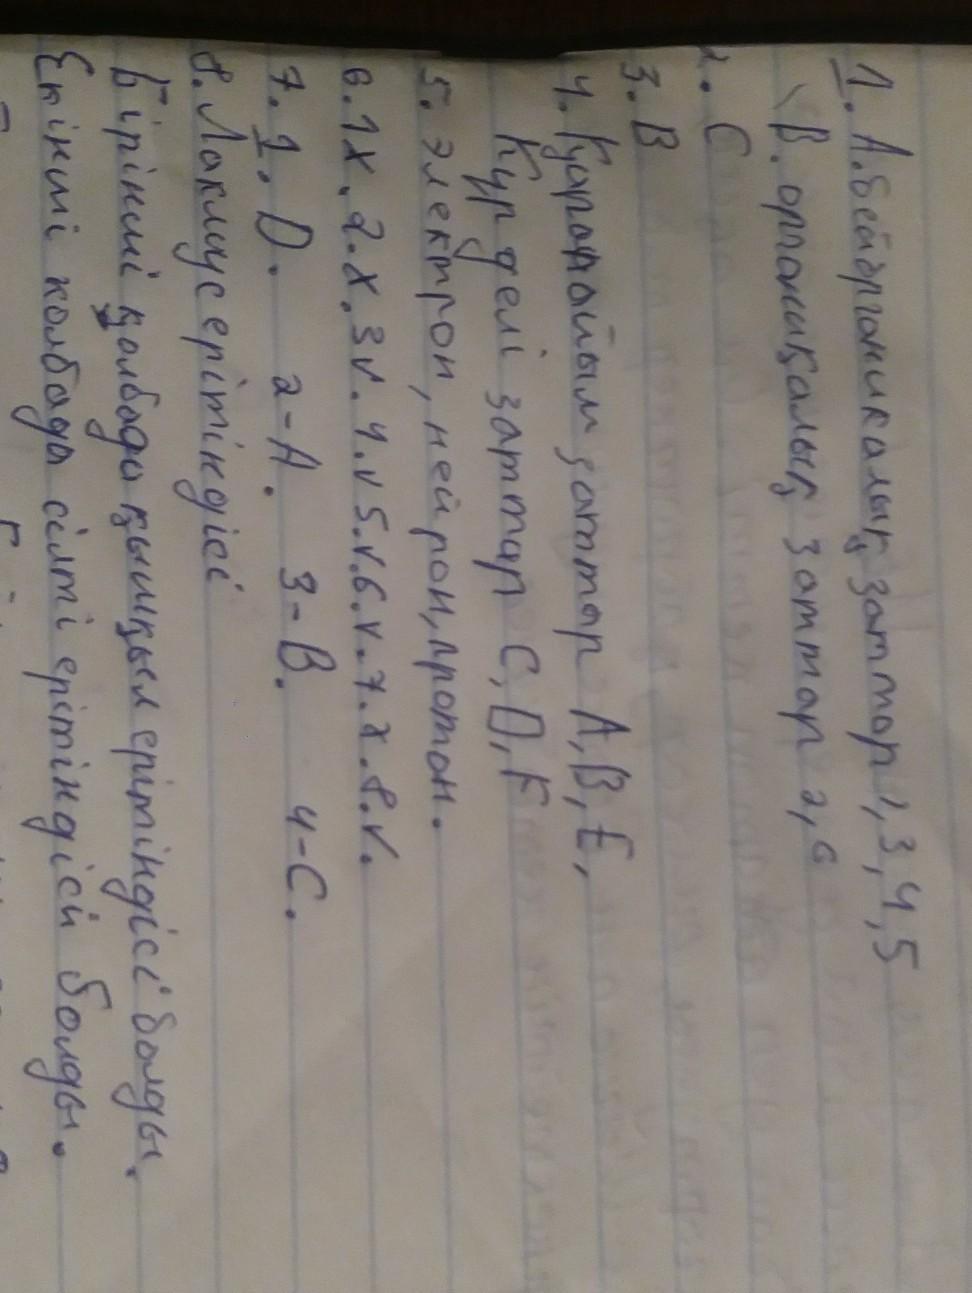 1. А. Бейорганикалық заттар 1, 3, 4, 5
В. органиқалық заттар 2, 6
2. С
3. В
4. Қарапайым заттар А, В, Е,
Күрделі заттар С, D, F
5. электрон, нейрон, протон.
6. 1x. 2.x. 3v. 4.v 5.v. 6.v. 7.x. 8.v.
7. 1. D. 2-A. 3-B. 4-C.
8. Лакмус ерітіндісі
Бірінші қолбада қышқыл ерітіндісі болды.
Екінші колбада сілті ерітіндісй болды.